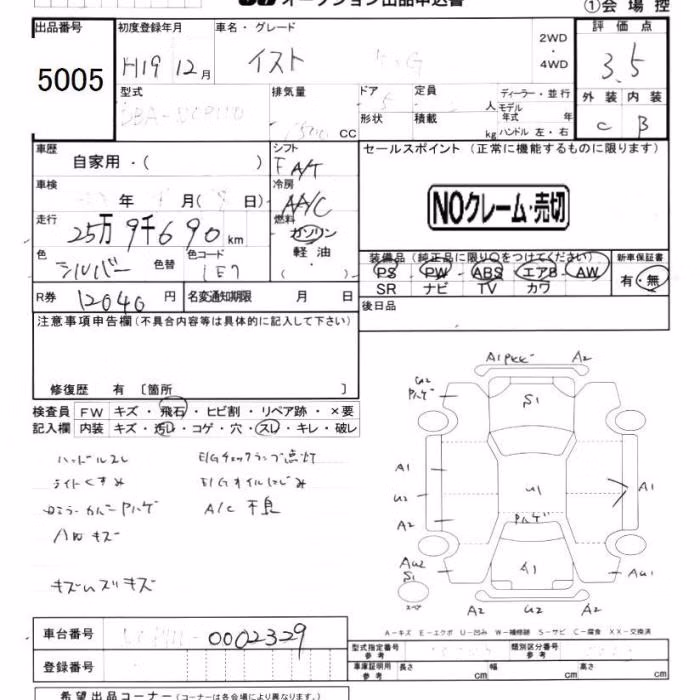 オークション出品申込書
①会場控
出品番号 初度登録年月 車名・グレード 2WD・4WD 評価点
5005 H19 12月 イスト 3.5
型式 排気量 CC ドア 5 定員 人 ディーラー・並行
形状 積載 kg モデル年式 年 ハンドル 左・右
外装 内装
C B
車歴 自家用・( ) シフト F A/T セールスポイント(正常に機能するものに限ります)
車検 年 月( 日) 冷房 AA/C
NOクレーム・売切
走行 25万9千690km 燃料 ガソリン 軽油・( )
色 シルバー 色替 色コード 1E7
装備品(純正品に限り○をつけてください) 新車保証書
PS PW ABS エアB AW 有・無
SR ナビ TV カワ
R券 12040円 名変通知期限 月 日 後日品
注意事項申告欄(不具合内容等は具体的に記入して下さい)
修復歴 有〔箇所 〕
検査員 FW キズ・飛石・ヒビ割・リペア跡・×要
記入欄 内装 キズ・汚レ・コゲ・穴・スレ・キレ・破レ
ハンドルスレ E/Gチェックランプ点灯
ライトくすみ E/Gオイルにじみ
A/C 不良
キズ
A2
U2
S1
A1
U1
A1
U2
A2
AU2
S1
A1
AU1
A2 U2 A2
A-キズ E-エクボ U-凹み W-補修跡 S-サビ C-腐食 XX-交換済
車台番号 0002329
登録番号
型式指定番号 参考 類別区分番号 参考
車庫証明用 参考 長さ cm 幅 cm 高さ cm
希望出品コーナー(コーナーは各会場により異なります。)